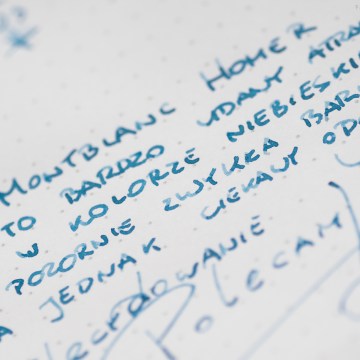 MONTBLANC HOMER
TO BARDZO UDANY ATRA
W KOLORZE NIEBIESKI
POZORNIE ZWYKŁA BAR
A JEDNAK CIEKAWY OD
Zdecydowanie
Polecam